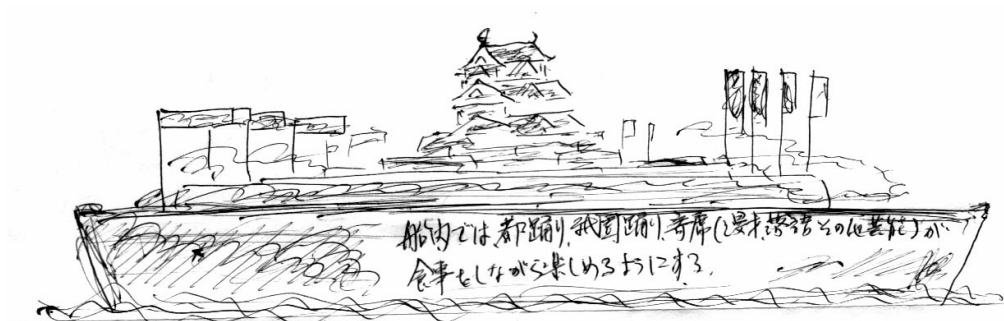 船内では、都踊り、祇園踊り、寄席(漫才、落語その他芸能)が
食事をしながら楽しめるようにする。